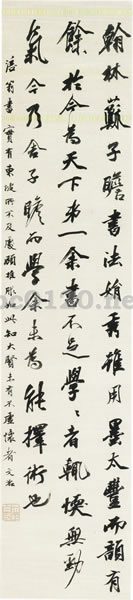 翰林蘇子瞻書法娟秀雖用墨太豐而韻有
餘於今為天下第一余書不足學學者輒愞無勁
氣今乃舍子瞻而學余未為能擇術也
涪翁書實有東坡所不及處顧推服如此知大賢未有不虛懷者文治